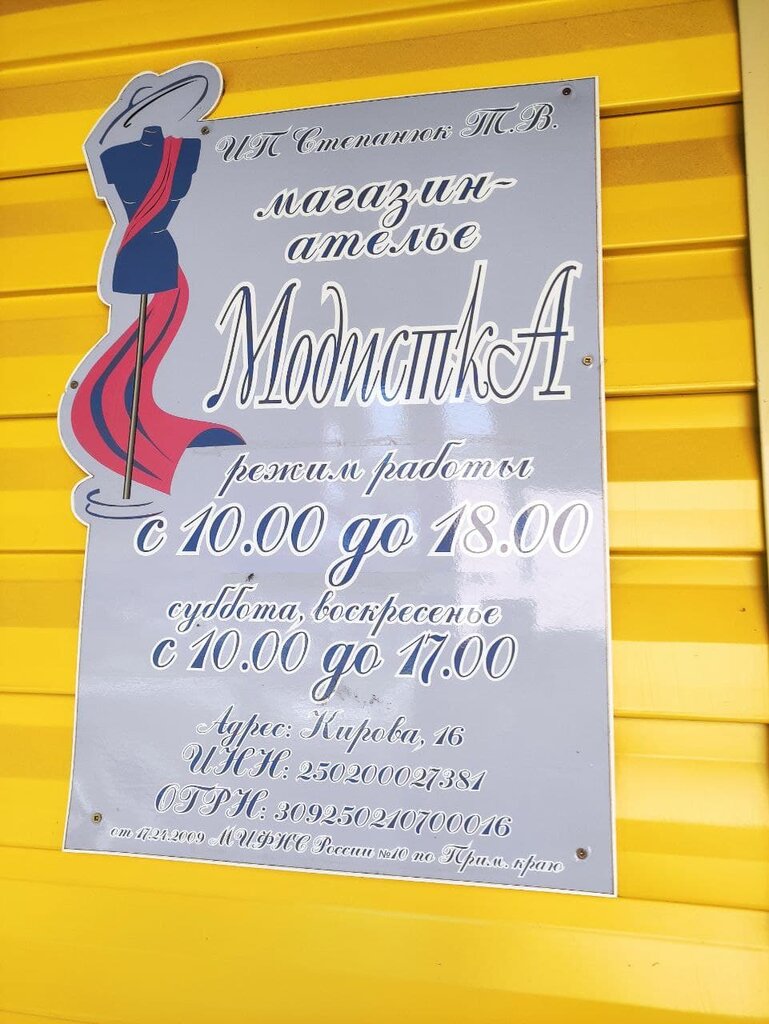 ИП Степанюк Т.В.
магазин-
ателье
МодисткА
режим работы
с 10.00 до 18.00
суббота, воскресенье
с 10.00 до 17.00
Адрес: Кирова, 16
ИНН: 250200027381
ОГРН: 309250210700016
от 17.24.2009 МИФНС России №10 по Прим. краю